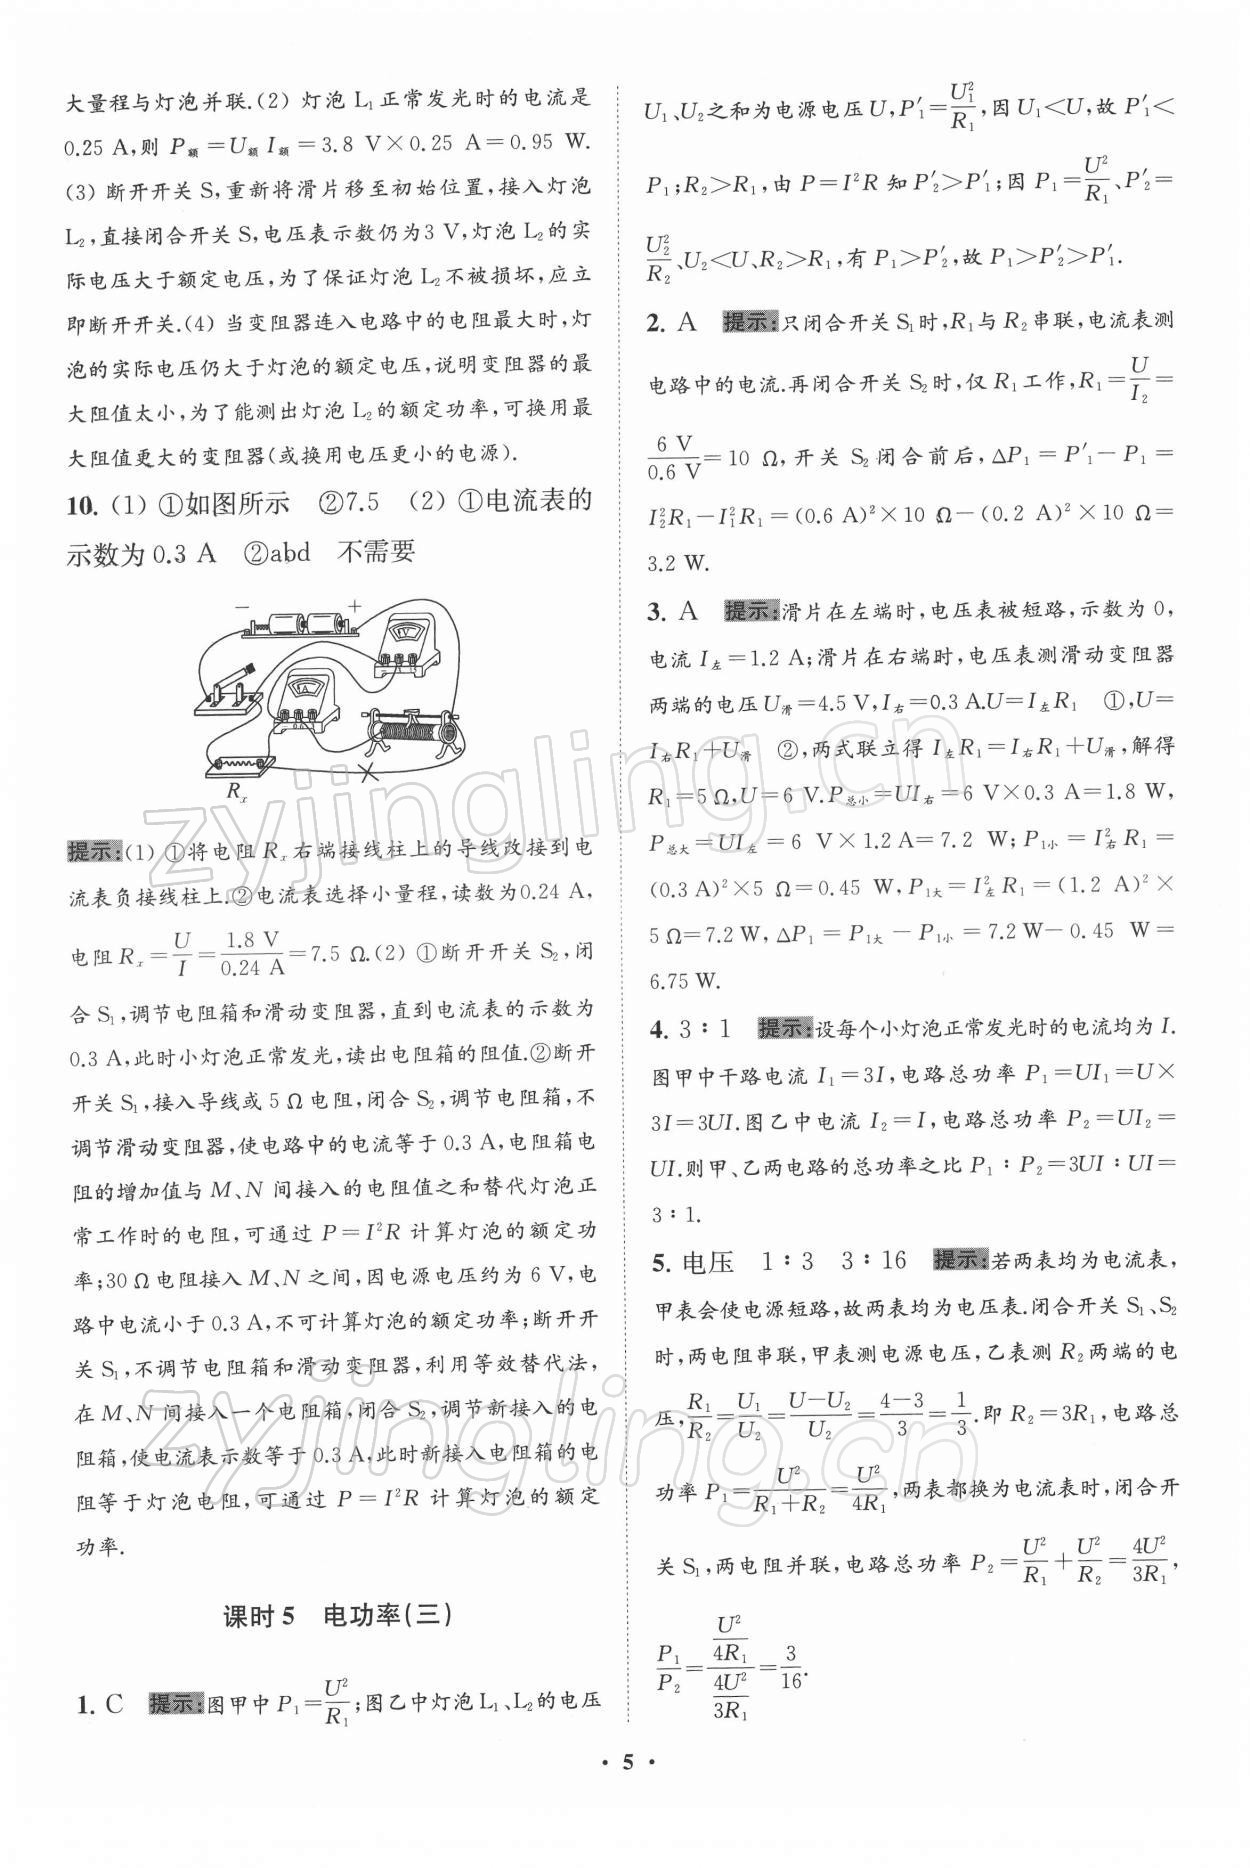 大量程与灯泡并联.(2) 灯泡 L₁正常发光时的电流是
0.25 A,则 P额=U额 I额=3.8 V×0.25 A=0.95 W.
(3) 断开开关 S,重新将滑片移至初始位置,接入灯泡
L₂,直接闭合开关 S,电压表示数仍为3 V,灯泡 L₂的实
际电压大于额定电压,为了保证灯泡 L₂不被损坏,应立
即断开开关.(4) 当变阻器连入电路中的电阻最大时,灯
泡的实际电压仍大于灯泡的额定电压,说明变阻器的最
大阻值太小,为了能测出灯泡 L₂的额定功率,可换用最
大阻值更大的变阻器(或换用电压更小的电源).
10. (1) ①如图所示 ②7.5 (2) ①电流表的
示数为 0.3 A ②abd 不需要
− +
V
A
Rₓ
提示:(1) ①将电阻 Rₓ 右端接线柱上的导线改接到电
流表负接线柱上.②电流表选择小量程,读数为0.24 A,
电阻 Rₓ=U/I=1.8 V/0.24 A=7.5 Ω.(2) ①断开开关 S₂,闭
合 S₁,调节电阻箱和滑动变阻器,直到电流表的示数为
0.3 A,此时小灯泡正常发光,读出电阻箱的阻值.②断开
开关 S₁,接入导线或 5 Ω 电阻,闭合 S₂,调节电阻箱,不
调节滑动变阻器,使电路中的电流等于 0.3 A,电阻箱电
阻的增加值与 M、N 间接入的电阻值之和替代灯泡正
常工作时的电阻,可通过 P=I²R 计算灯泡的额定功
率;30 Ω 电阻接入 M、N 之间,因电源电压约为 6 V,电
路中电流小于 0.3 A,不可计算灯泡的额定功率;断开开
关 S₁,不调节电阻箱和滑动变阻器,利用等效替代法,
在 M、N 间接入一个电阻箱,闭合 S₂,调节新接入的电
阻箱,使电流表示数等于 0.3 A,此时新接入电阻箱的电
阻等于灯泡电阻,可通过 P=I²R 计算灯泡的额定
功率.
课时 5 电功率(三)
1. C 提示:图甲中 P₁=U²/R₁;图乙中灯泡 L₁、L₂的电压
U₁、U₂之和为电源电压 U,P′₁=U₁²/R₁,因 U₁<U,故 P′₁<
P₁;R₂>R₁,由 P=I²R 知 P′₂>P′₁;因 P₁=U²/R₁、P′₂=
U₂²/R₂、U₂<U、R₂>R₁,有 P₁>P′₂,故 P₁>P′₂>P′₁.
2. A 提示:只闭合开关 S₁时,R₁与 R₂串联,电流表测
电路中的电流.再闭合开关 S₂时,仅 R₁工作,R₁=U/I₂=
6 V/0.6 V=10 Ω,开关 S₂闭合前后,ΔP₁=P′₁−P₁=
I₂²R₁−I₁²R₁=(0.6 A)²×10 Ω−(0.2 A)²×10 Ω=
3.2 W.
3. A 提示:滑片在左端时,电压表被短路,示数为 0,
电流 I左=1.2 A;滑片在右端时,电压表测滑动变阻器
两端的电压 U滑=4.5 V,I右=0.3 A.U=I左R₁ ①,U=
I右R₁+U滑 ②,两式联立得 I左R₁=I右R₁+U滑,解得
R₁=5 Ω,U=6 V.P总小=UI右=6 V×0.3 A=1.8 W,
P总大=UI左=6 V×1.2 A=7.2 W;P₁小=I右²R₁=
(0.3 A)²×5 Ω=0.45 W,P₁大=I左²R₁=(1.2 A)²×
5 Ω=7.2 W,ΔP₁=P₁大−P₁小=7.2 W−0.45 W=
6.75 W.
4. 3∶1 提示:设每个小灯泡正常发光时的电流均为 I.
图甲中干路电流 I₁=3I,电路总功率 P₁=UI₁=U×
3I=3UI.图乙中电流 I₂=I,电路总功率 P₂=UI₂=
UI.则甲、乙两电路的总功率之比 P₁∶P₂=3UI∶UI=
3∶1.
5. 电压 1∶3 3∶16 提示:若两表均为电流表,
甲表会使电源短路,故两表均为电压表.闭合开关 S₁、S₂
时,两电阻串联,甲表测电源电压,乙表测 R₂两端的电
压,R₁/R₂=U₁/U₂=(U−U₂)/U₂=(4−3)/3=1/3.即 R₂=3R₁,电路总
功率 P₁=U²/(R₁+R₂)=U²/4R₁,两表都换为电流表时,闭合开
关 S₁,两电阻并联,电路总功率 P₂=U²/R₁+U²/R₂=4U²/3R₁,
P₁/P₂=(U²/4R₁)/(4U²/3R₁)=3/16.
zyjingling.cn
zyjingling.cn
• 5 •